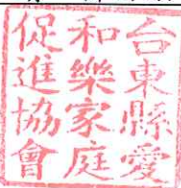 台東縣愛
和樂家庭
促進協會